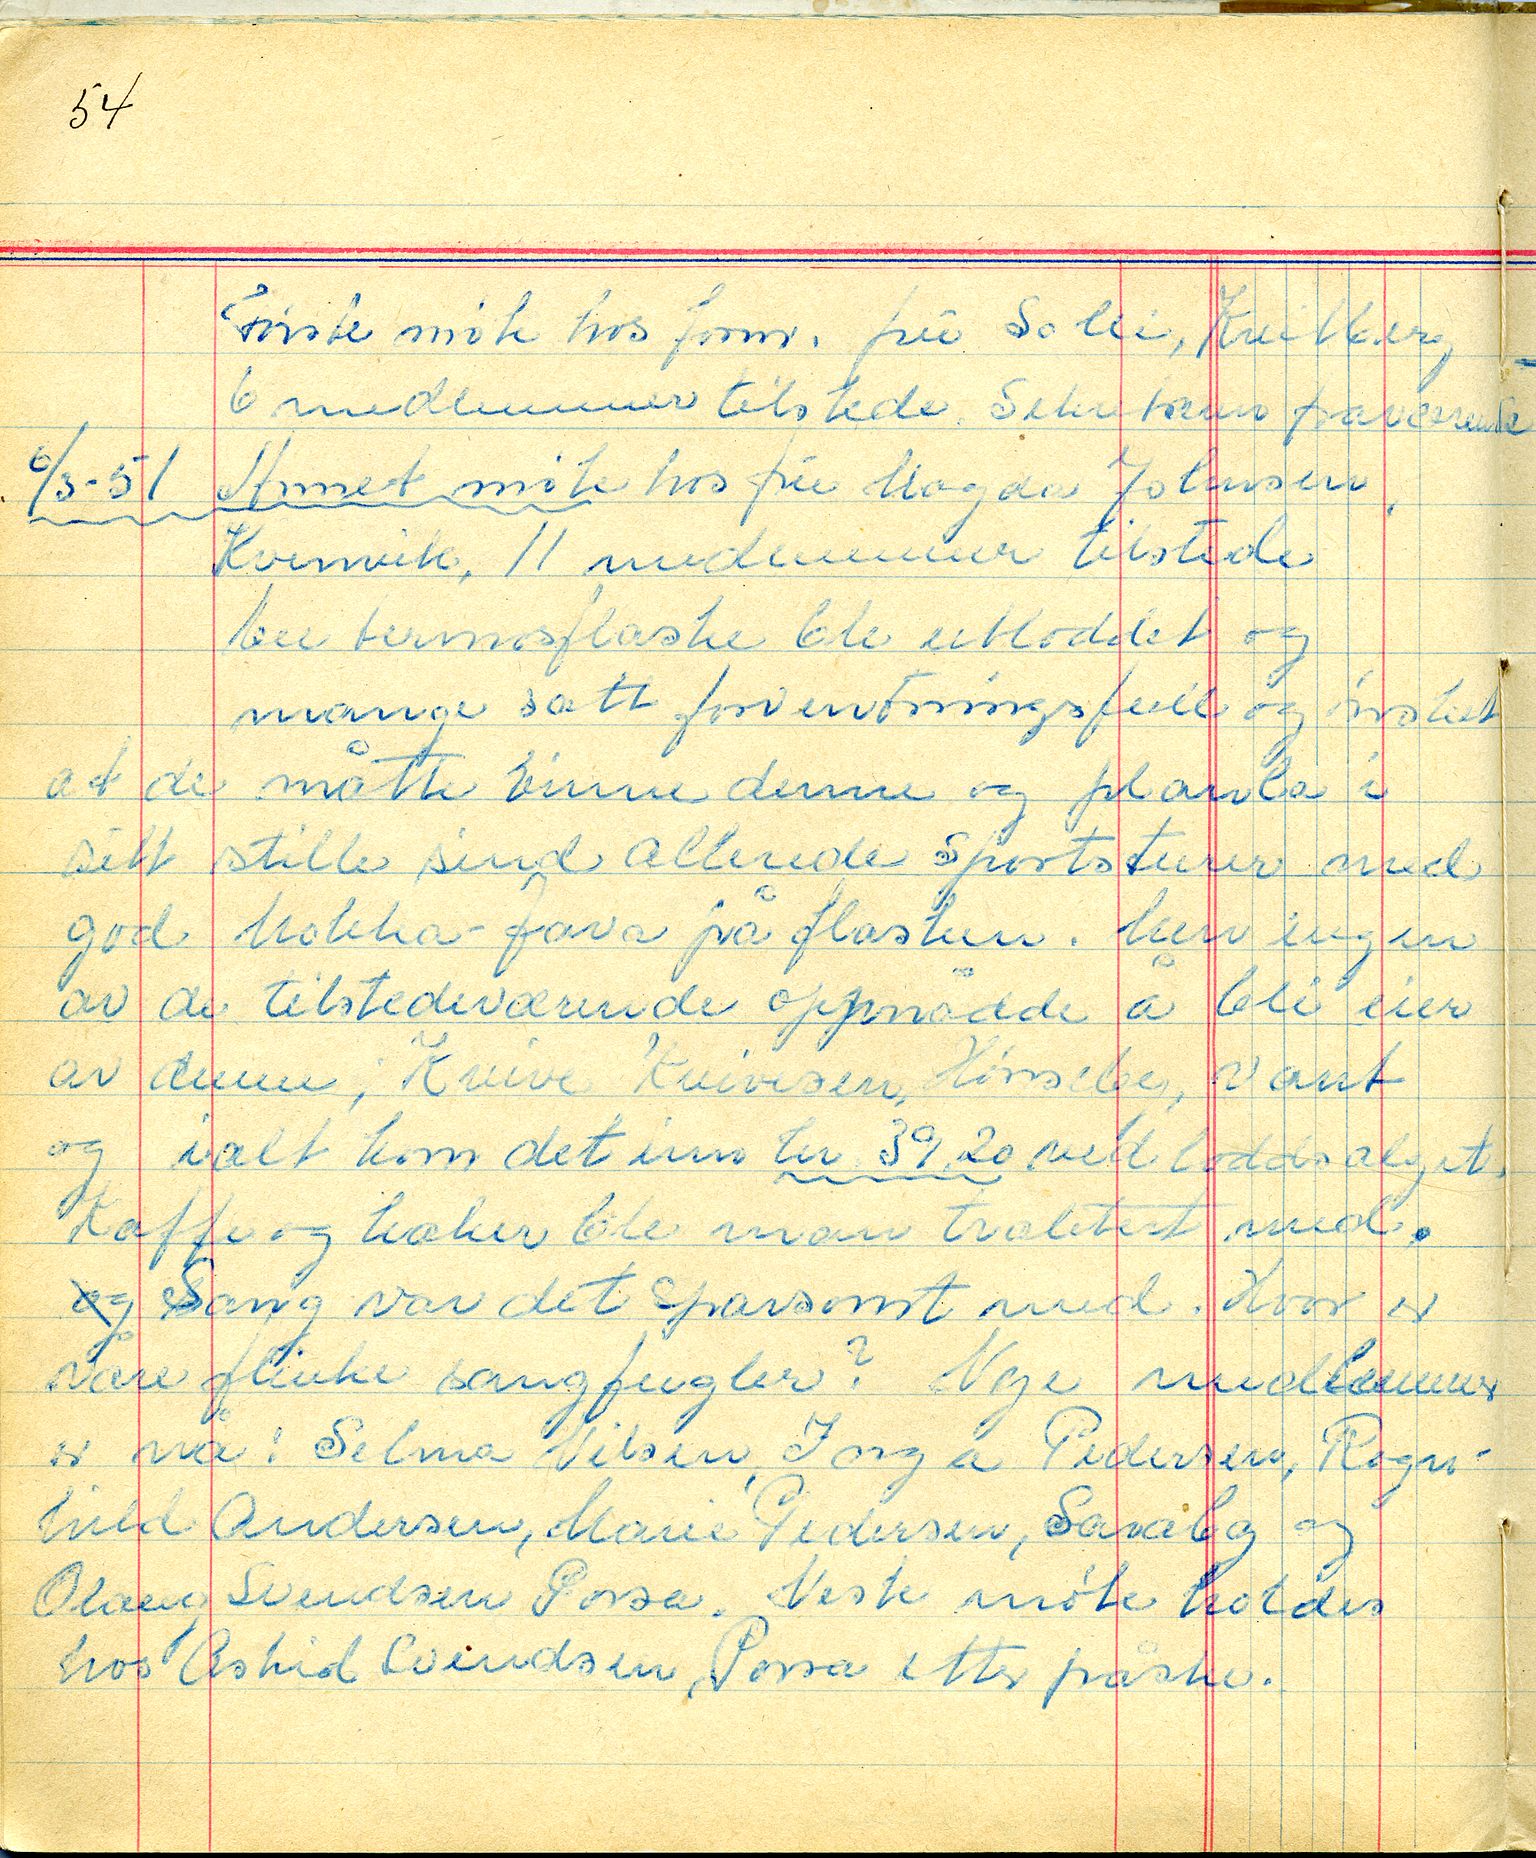 54
Første møte hos form. frü Solei, Kveilberg
6 medlemmer tilstede. Sekretæren fraværende
6/3-51 Annet møte hos frü Magda Johnsen,
Kvenvik, 11 medlemmer tilstede
En termosflaske ble utloddet og
mange satt forventningsfull og ønsket
at de måtte vinne denne og planla i
sitt stille sind allerede sportsturer med
god Mokka-Java på flasken. Men ingen
av de tilstedeværende oppnådde å bli eier
av denne, Kvive Kvivesen, Hønseby, vant
og ialt kom det inn kr 39,20 ved loddsalget.
Kaffe og kaker ble man traktert med.
og Sang var det sparsomt med. Hvor er
våre flinke sangfugler? Nye medlemmer
er nå: Selma Nilsen, Inga Pedersen, Ragn-
hild Andersen, Marie Pedersen, Saraby og
Olaug Svendsen Porsa. Neste møte holdes
hos Astrid Svendsen, Porsa etter påske.